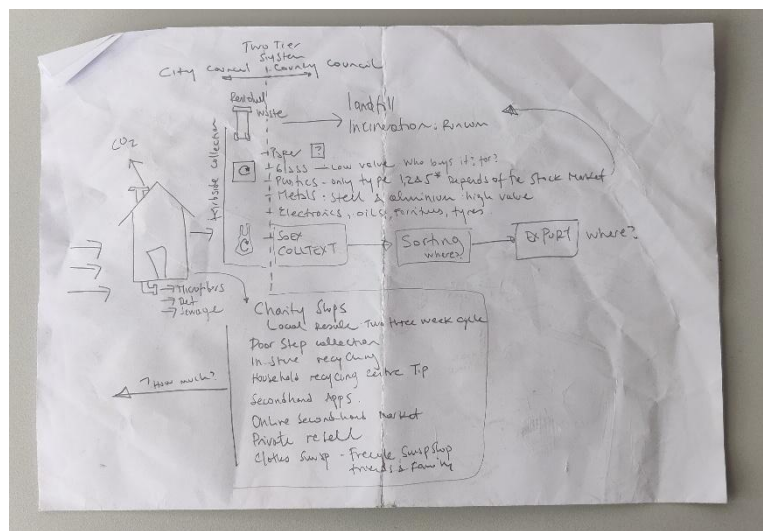 Two Tier
System
City council | County council
Residual
Waste
Landfill
Incineration: Runcorn
CO2
Kerbside collection
Paper ?
Glass - Low value who buys it; for?
Plastics - only type 1,2&5* Depends of the Stock Market
Metals: Steel & aluminium high value
Electronics, oils, furniture, tyres
SOEX
COLLTEXT
Sorting
where?
EXPORT
where?
Microfibres
Det
Sewage
Charity Shops
Local Resale Two three week cycle
Door Step collection
In store recycling
Household recycling centre Tip
Secondhand Apps.
Online Secondhand Market
Private resell
Clothes Swap - Freecyle, SwapShop
friends & family
? How much?